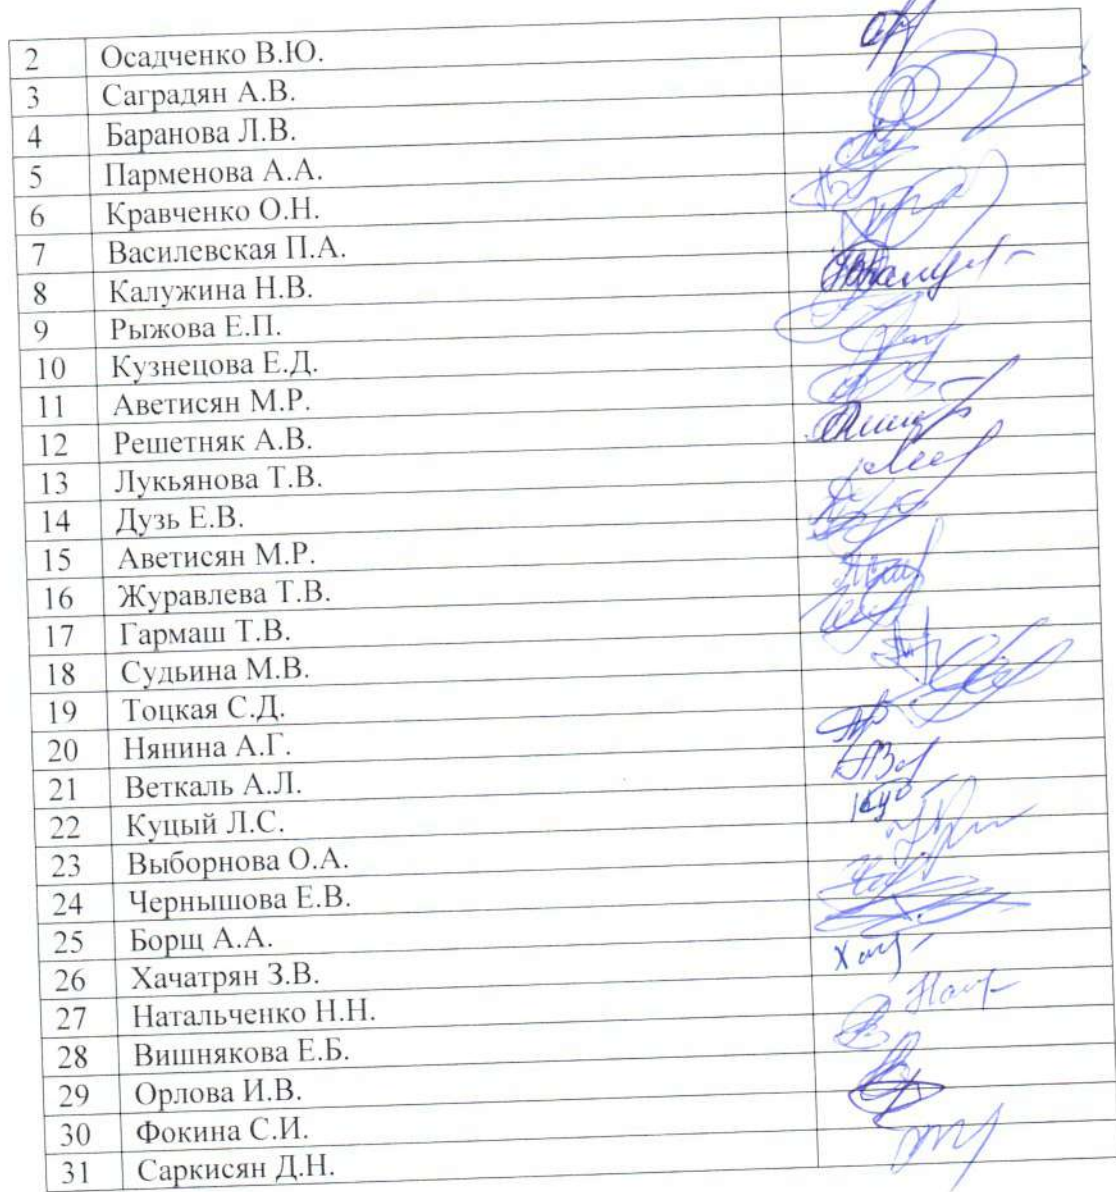 2 Осадченко В.Ю.
3 Саградян А.В.
4 Баранова Л.В.
5 Парменова А.А.
6 Кравченко О.Н.
7 Василевская П.А.
8 Калужина Н.В.
9 Рыжова Е.П.
10 Кузнецова Е.Д.
11 Аветисян М.Р.
12 Решетняк А.В.
13 Лукьянова Т.В.
14 Дузь Е.В.
15 Аветисян М.Р.
16 Журавлева Т.В.
17 Гармаш Т.В.
18 Судьина М.В.
19 Тоцкая С.Д.
20 Нянина А.Г.
21 Веткаль А.Л.
22 Куцый Л.С.
23 Выборнова О.А.
24 Чернышова Е.В.
25 Борщ А.А.
26 Хачатрян З.В.
27 Натальченко Н.Н.
28 Вишнякова Е.Б.
29 Орлова И.В.
30 Фокина С.И.
31 Саркисян Д.Н.